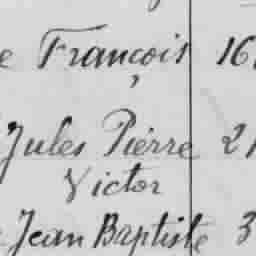 e François 16
Jules Pierre 21
Victor
Jean Baptiste 3